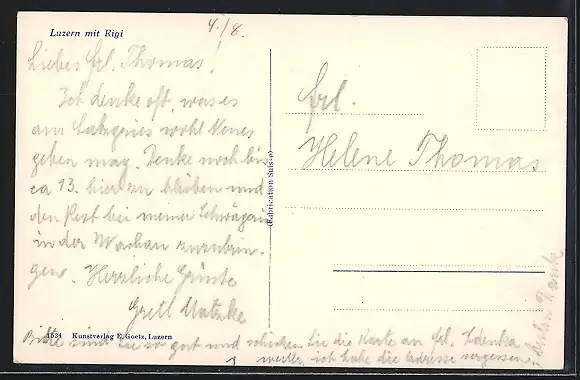 Luzern mit Rigi
4./8.
Liebes Frl. Thomas!
Ich denke oft, was es
am wohl Neues
geben mag. Denke noch bis
ca 13. hier zu bleiben und
den Rest bei meiner Schwägerin
in der Wachau zuzubrin-
gen. Herzliche Grüße
Gretl
1534 Kunstverlag E. Goetz, Luzern
Bitte sind Sie so gut und schicken Sie die Karte an Frl. Zdenka
weiter, ich habe die Adresse vergessen.
Vielen Dank
(Fabrication Suisse)
Frl.
Helene Thomas